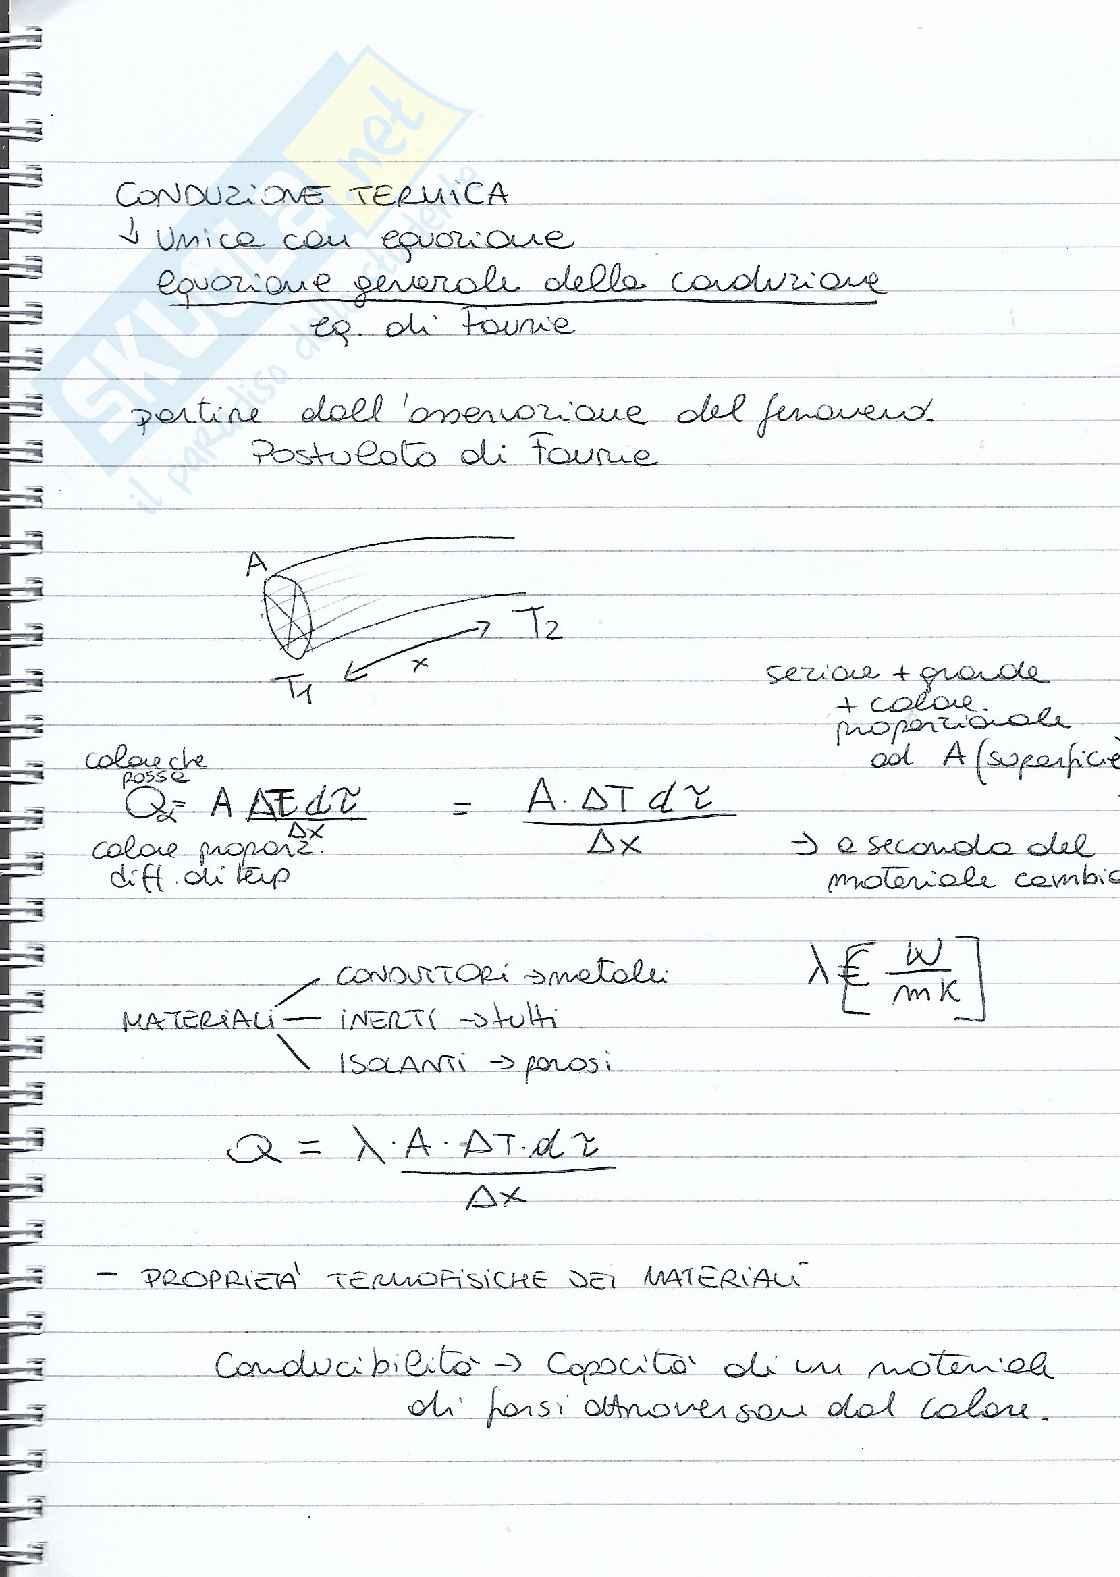 SKUOLA.net
il paradiso dello studente
CONDUZIONE TERMICA
↓ Unica con equazione
equazione generale della conduzione
eq. di Fourie
partire dall'osservazione del fenomeno.
Postulato di Fourie
A
T2
x
T1
sezione + grande
+ calore.
proporzionale
ad A (superficie)
calore che
passa
Q = A ΔT dτ / Δx = A · ΔT dτ / Δx
calore proporz.
diff. di temp
→ a seconda del
materiale cambia
λ ∈ [W / mK]
CONDUTTORI → metalli
MATERIALI — INERTI → tutti
ISOLANTI → porosi
Q = λ · A · ΔT · dτ / Δx
- PROPRIETA' TERMOFISICHE DEI MATERIALI
Conducibilità → Capacità di un materiale
di farsi attraversare dal calore.